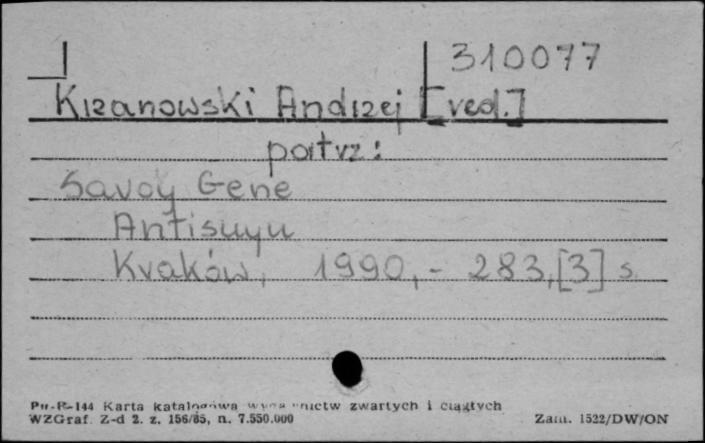 310077
Krzanowski Andrzej [red.]
patrz:
Savoy Gene
Antisuyu
Kraków, 1990, - 283, [3] s.
Pu-R-144 Karta katalogowa zwartych i ciągłych
WZGraf. Z-d 2. z. 156/85, n. 7.550.000 Zam. 1522/DW/ON